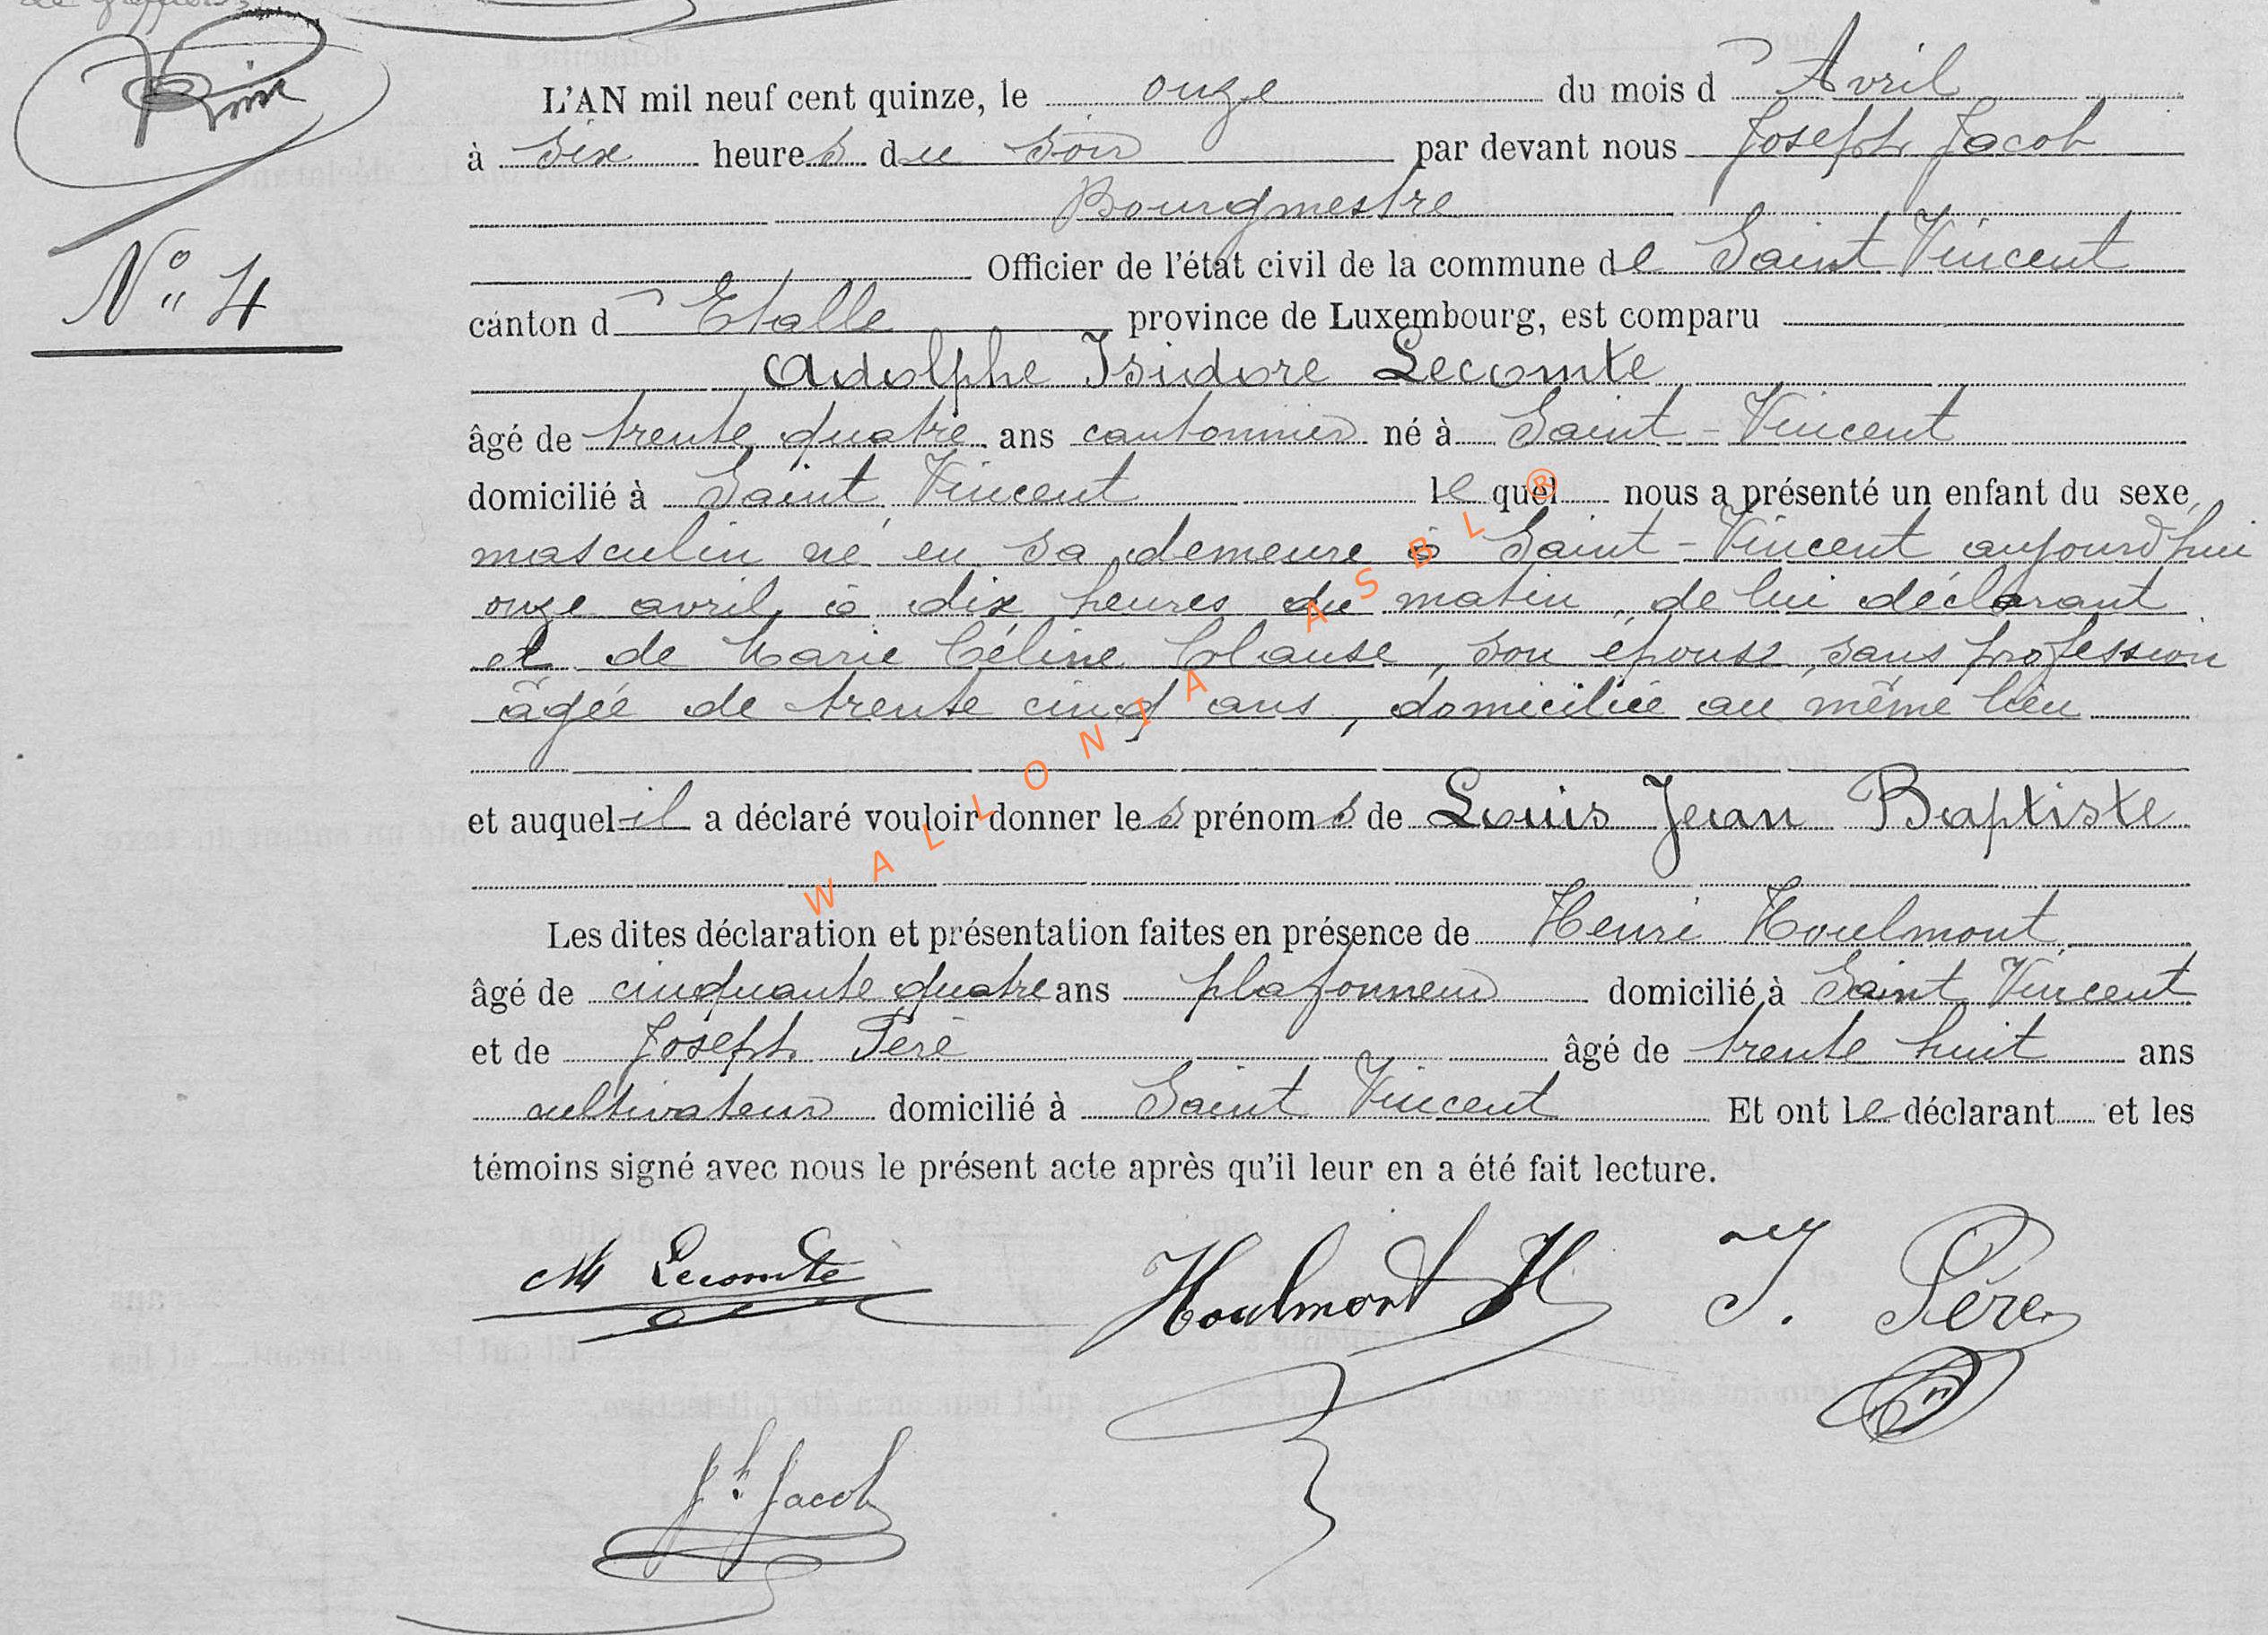 L'AN mil neuf cent quinze, le onze du mois d' Avril
à six heures du soir par devant nous Joseph Jacob
Bourgmestre
Officier de l'état civil de la commune de Saint Vincent
N° 4
canton d' Etalle province de Luxembourg, est comparu
Adolphe Isidore Lecomte
âgé de trente quatre ans cantonnier né à Saint-Vincent
domicilié à Saint Vincent lequel nous a présenté un enfant du sexe
masculin né en sa demeure à Saint-Vincent aujourd'hui
onze avril à dix heures du matin, de lui déclarant
et de Marie Céline Clause, son épouse, sans profession
âgée de trente cinq ans, domiciliée au même lieu
et auquel il a déclaré vouloir donner les prénoms de Louis Jean Baptiste
Les dites déclaration et présentation faites en présence de Henri Houlmont
âgé de cinquante quatre ans plafonneur domicilié à Saint Vincent
et de Joseph Péré âgé de trente huit ans
cultivateur domicilié à Saint Vincent Et ont le déclarant et les
témoins signé avec nous le présent acte après qu'il leur en a été fait lecture.
Lecomte Houlmont H J. Père
Jh Jacob
WALLONIA ASBL ®